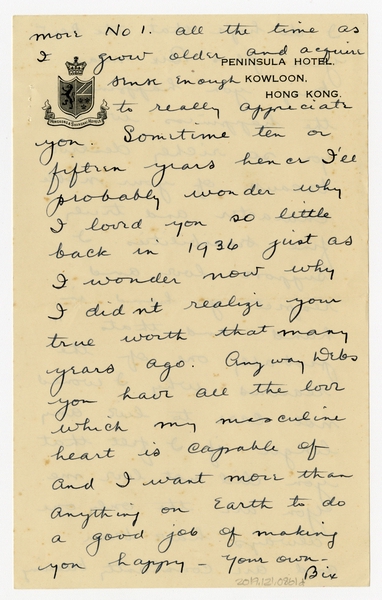 more No 1. all the time as
I grow older and acquire
PENINSULA HOTEL.
sense enough
KOWLOON,
HONG KONG.
to really appreciate
you. Sometime ten or
fifteen years hence I'll
probably wonder why
I loved you so little
back in 1936 just as
I wonder now why
I didn't realize your
true worth that many
years ago. Anyway Debs
you have all the love
which my masculine
heart is capable of
and I want more than
anything on Earth to do
a good job of making
you happy - your own -
Bix